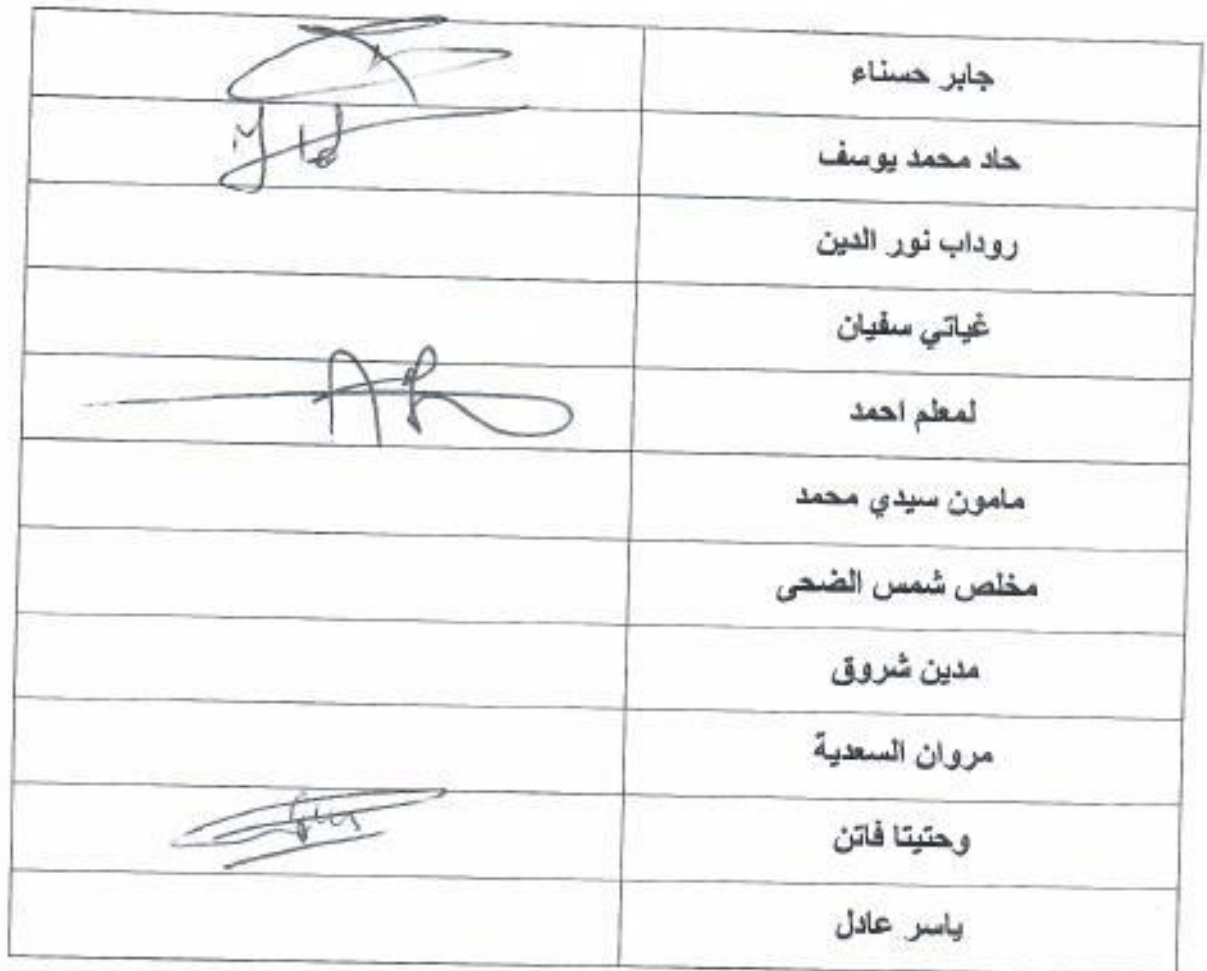 جابر حسناء
حاد محمد يوسف
روداب نور الدين
غياتي سفيان
لمعلم احمد
مامون سيدي محمد
مخلص شمس الضحى
مدين شروق
مروان السعدية
وحتيتا فاتن
ياسر عادل